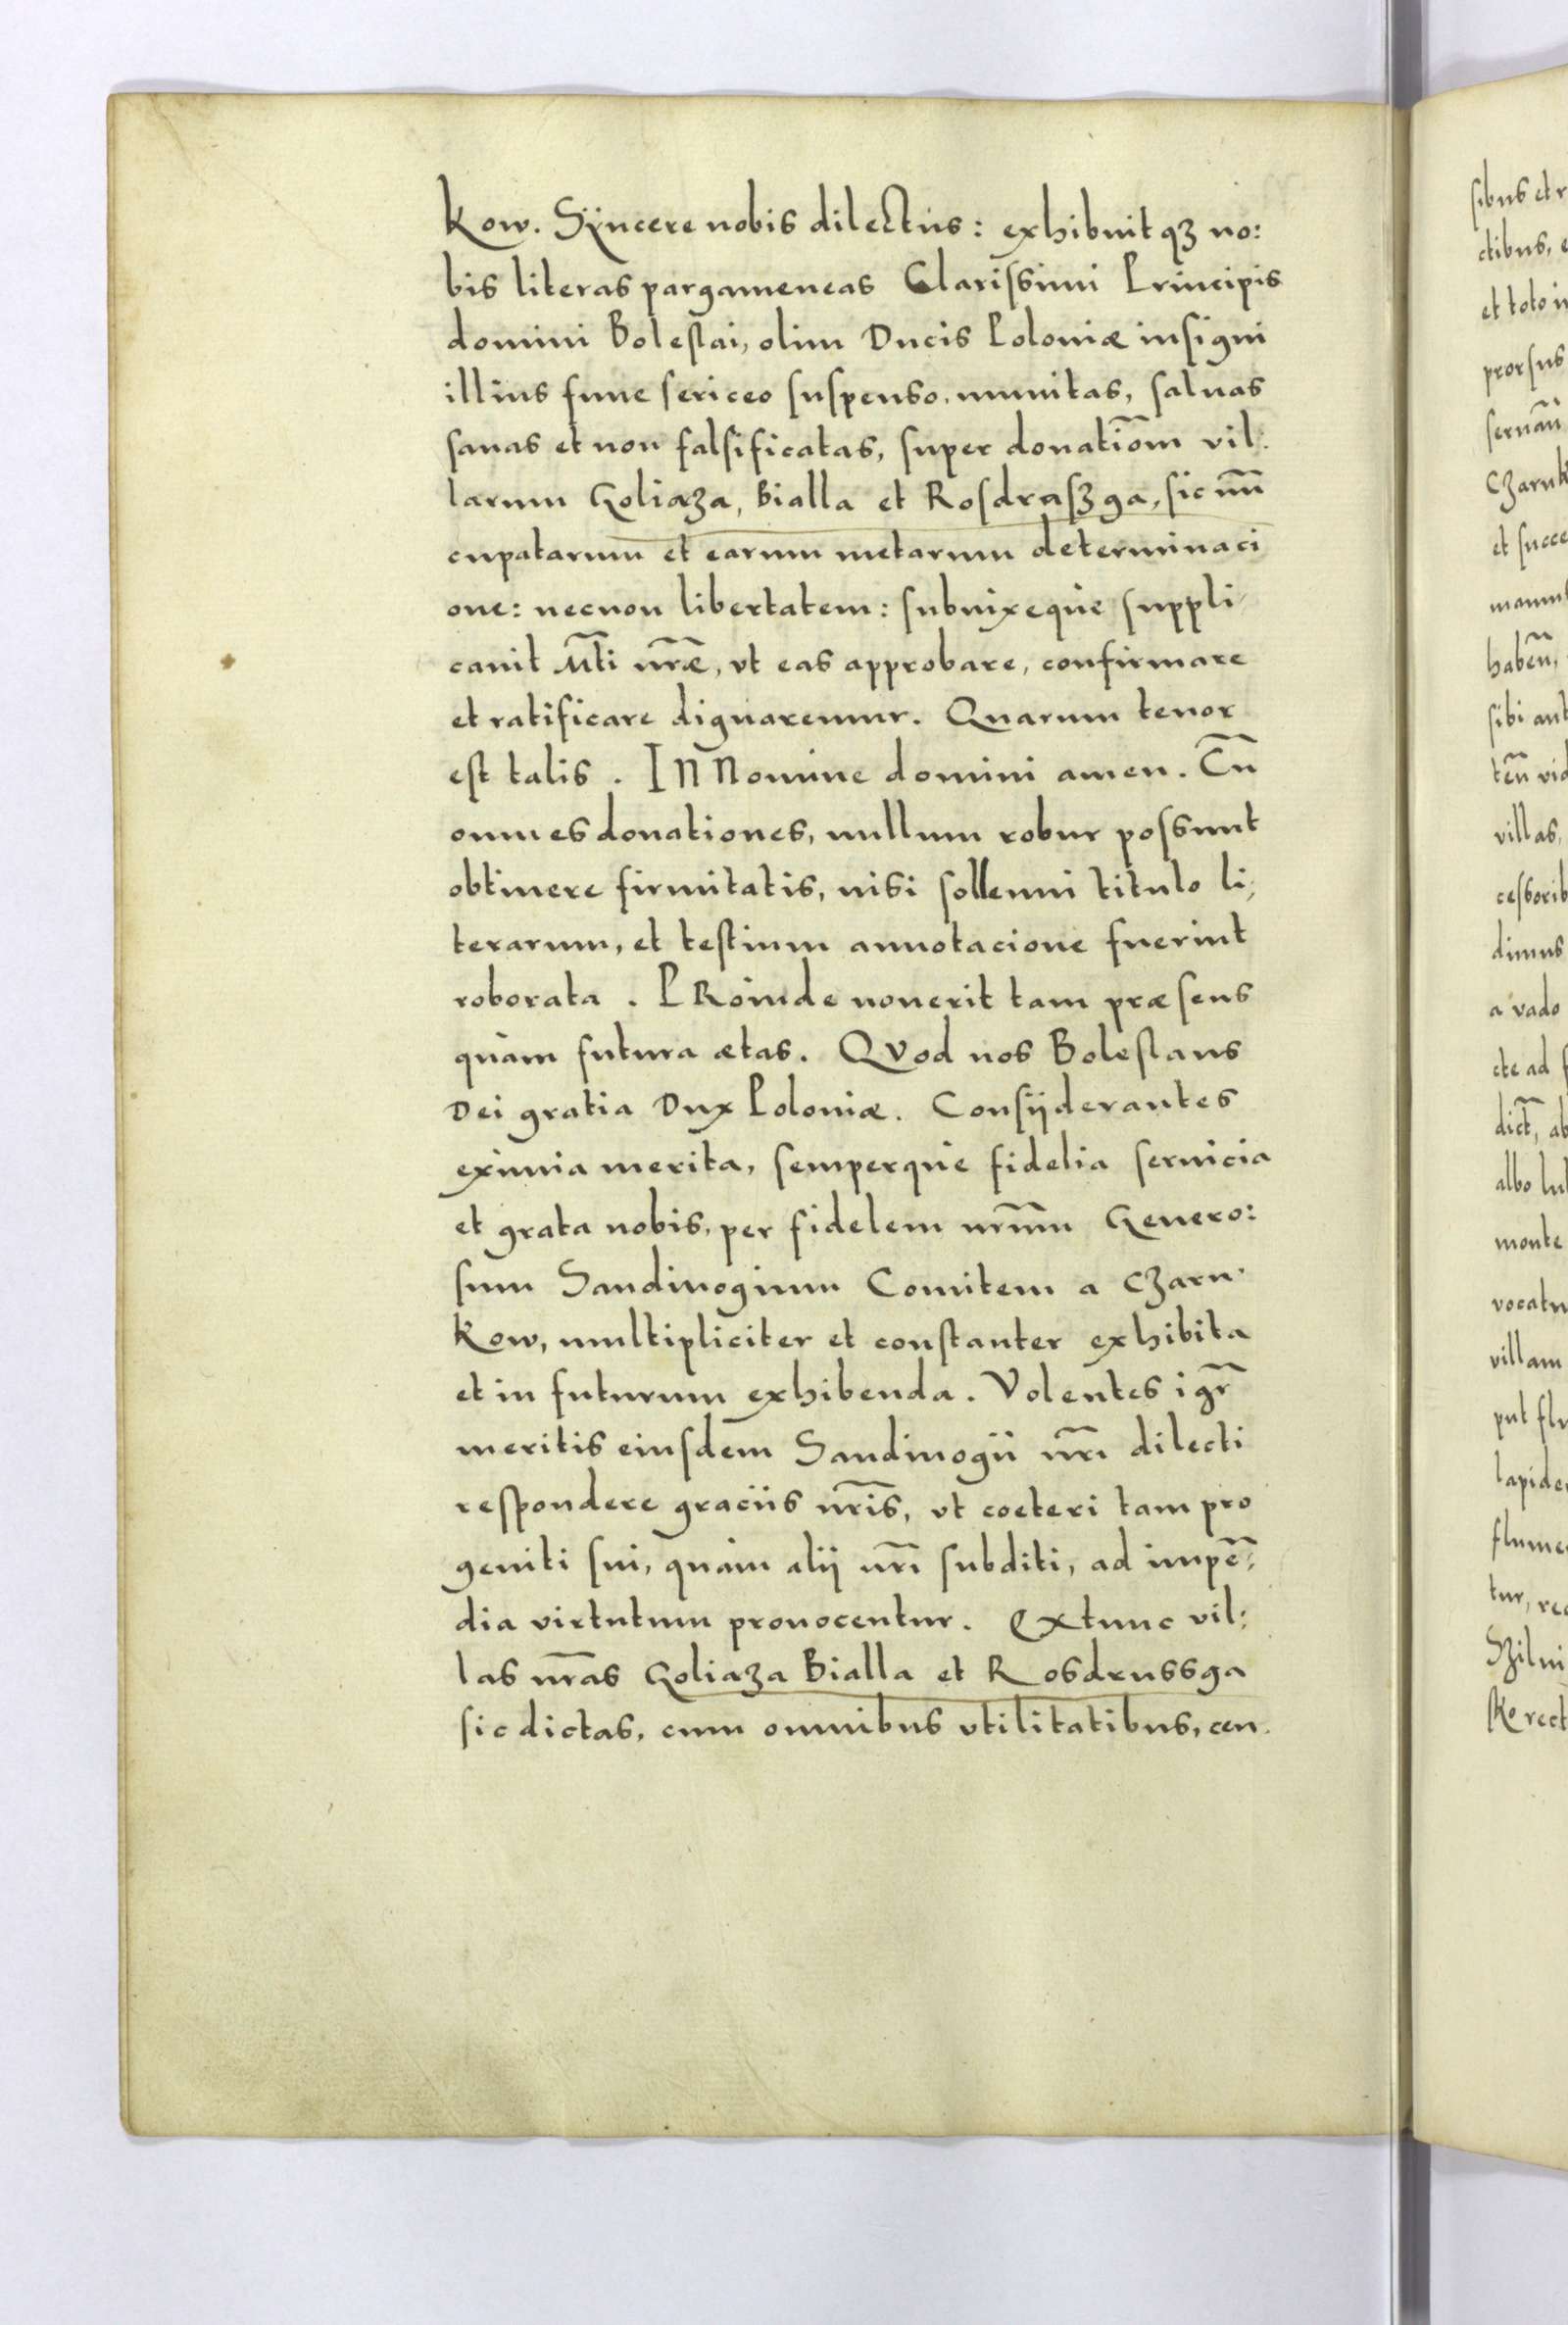 kow. Sÿncere nobis dilectus: exhibuitqꝫ no:
bis literas pargameneas Clarissimi Principis
domini Boleslai, olim Ducis Poloniæ insigni
illius fune sericeo suspenso, munitas, saluas
sanas et non falsificatas, super donatiōm vil:
larum Goliaza, Bialla et Rosdraszga, sic nū̄
cupatarum et earum metarum determinaci
one: necnon libertatem: subnixeque suppli,
cauit M̄ti nr̄æ, vt eas approbare, confirmare
et ratificare dignaremur. Quarum tenor
est talis. IN Nomine domini amen. Cū
omnes donationes, nullum robur possunt
obtinere firmitatis, nisi sollenni titulo li,
terarum, et testium annotacione fuerint
roborata. PRoinde nouerit tam præsens
quàm futura ætas. QVod nos Boleslaus
Dei gratia Dux Poloniæ. Consÿderantes
eximia merita, semperque fidelia seruicia
et grata nobis, per fidelem nr̄um Genero:
sum Sandiuogium Comitem a Czarn.
kow, multipliciter et constanter exhibita
et in futurum exhibenda. Volentes igr̄
meritis eiusdem Sandiuogii nr̄i dilecti
respondere graciis nr̄is, vt coeteri tam pro
geniti sui, quàm alij nr̄i subditi, ad impē:
dia virtutum prouocentur. Extunc vil:
las nr̄as Goliaza Bialla et Rosdrussga
sic dictas, cum omnibus vtilitatibus, cen.
sibus et r
ctibus, e
et toto in
prorsus
seruān
Czarnk
et succe
manul
habēn,
sibi ant
tēn vid
villas,
cessorib
dimus
a vado
cte ad f
dict̄, ab
albo lul
monte
vocatu
villam
put flu
lapide
flume
tur, rec
Szilui
sko rect